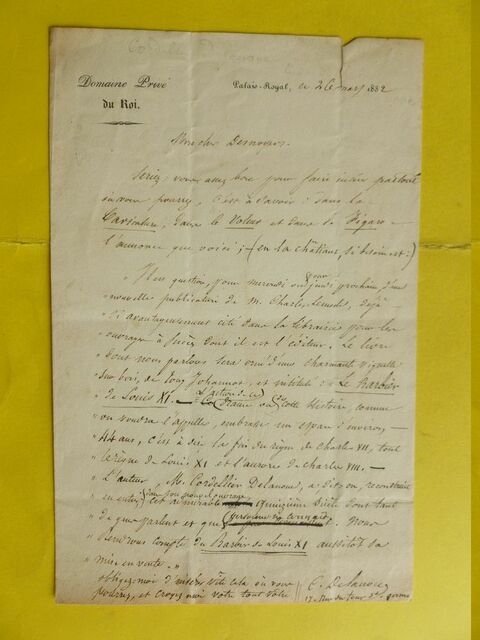 Cordellier Delanoue
Domaine Privé
du Roi.
Palais-Royal, ce 26 mars 1832
Mon cher Desnoyers.
Seriez-vous assez bon pour faire insérer partout
où vous pourrez, c'est à savoir : dans la
Caricature, dans le Voleur et dans le Figaro –
l'annonce que voici ; – (en la châtiant, si besoin est :)
" Il est question, pour mercredi ou jeudi prochain, d'une
" nouvelle publication de M. Charles déjà
" si avantageusement cité dans la librairie pour les
" ouvrages à succès dont il est l'éditeur. Le livre
" dont nous parlons sera orné d'une charmante vignette
" sur bois, de Tony Johannot, et intitulé : Le Barbier
" de Louis XI. – L'action de ce
Drame ou cette histoire, comme
" on voudra l'appeler, embrasse un espace d'environ
" 44 ans, c'est à dire la fin du règne de Charles VII, tout
" le règne de Louis XI et l'aurore de Charles VIII. –
" L'auteur, M. Cordellier Delanoue, a dit-on, reconstruit
" en entier, dans son nouvel ouvrage,
cet admirable quinzième siècle dont tant
" de gens parlent et que personne ne connaît. Nous
" rendrons compte du Barbier de Louis XI aussitôt sa
" mise en vente. "
obligez-moi d'insérer vite cela où vous
pourrez, et croyez moi votre tout vôtre
C. Delanoue
17 Rue du four St. germain